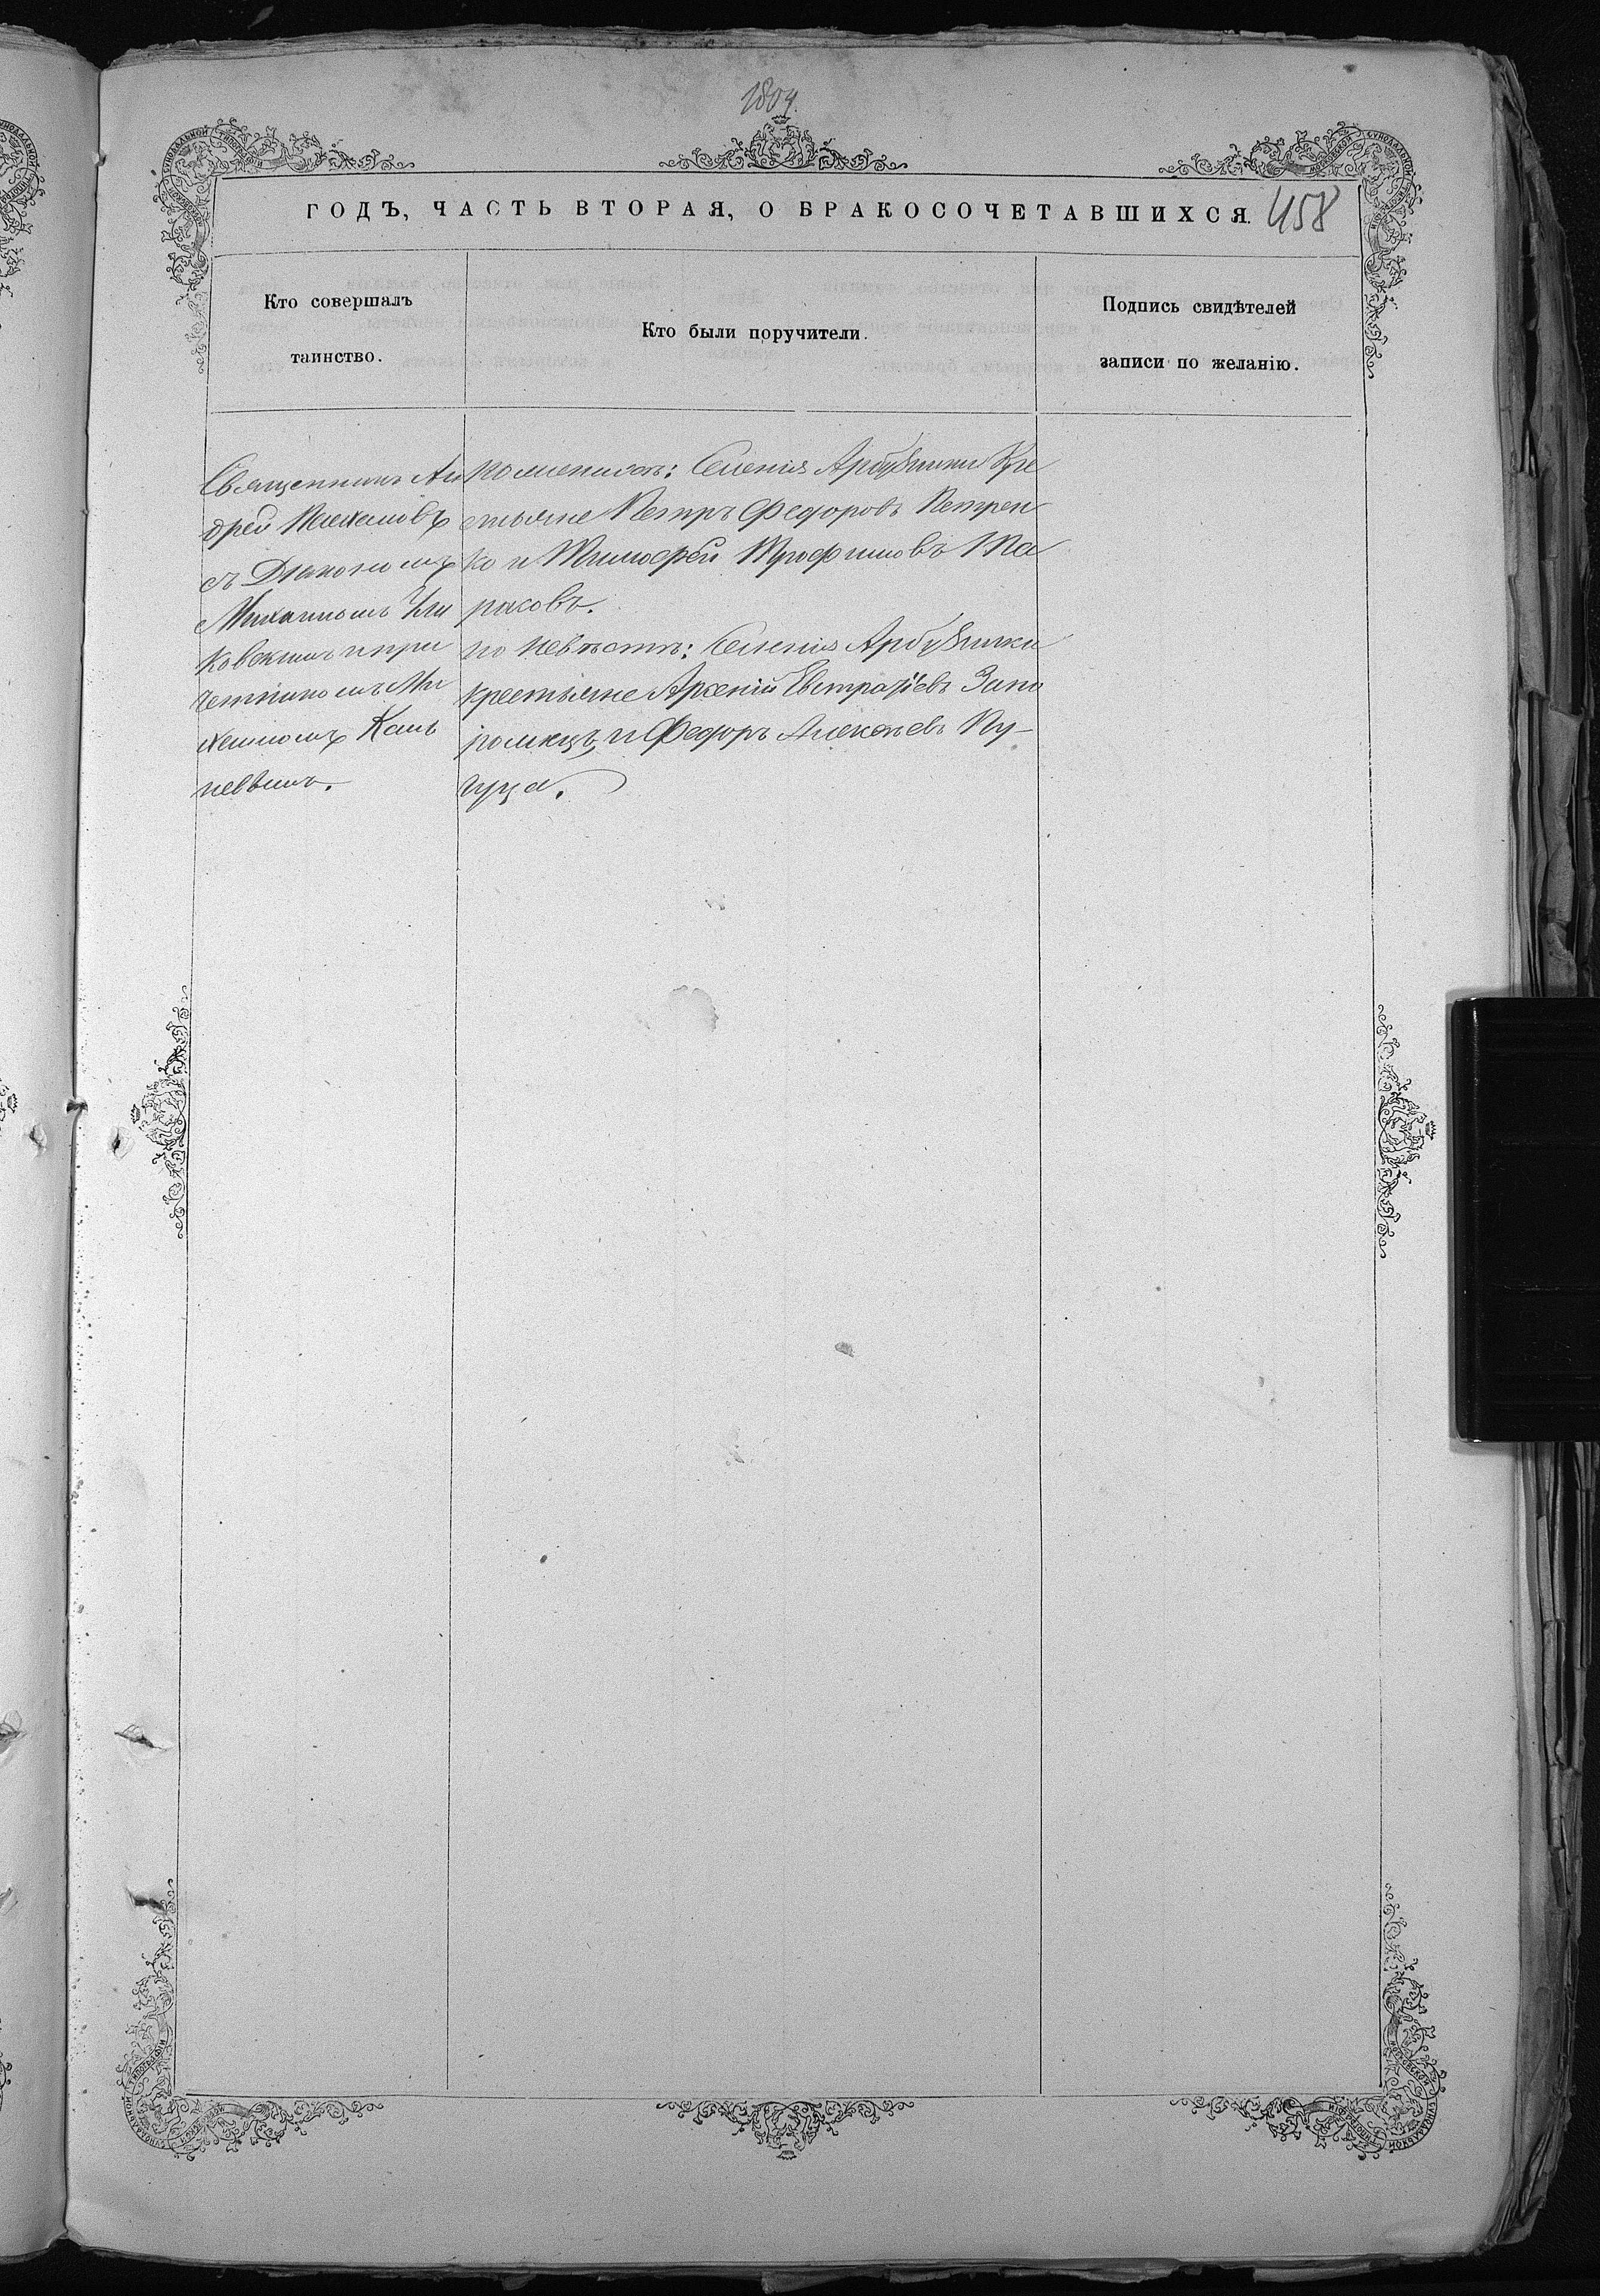 1804.
ГОДЪ, ЧАСТЬ ВТОРАЯ, О БРАКОСОЧЕТАВШИХСЯ.
458
Кто совершалъ
таинство.
Кто были поручители.
Подпись свидѣтелей
записи по желанію.
Священникъ Ан
дрей
съ Діакономъ
Михаиломъ
ковскимъ и при
четникомъ Ми
хаиломъ Кань
невымъ.
по женихѣ: Селенія Арбузинки Кре
стьяне Петръ Федоровъ Петрен
ко и Тимофей Трофимовъ Та
расовъ.
по невѣстѣ: Селенія Арбузинки
крестьяне Арсеній Евстратіевъ Запо
рожецъ и Федоръ Алексѣевъ Пу-
гуца.